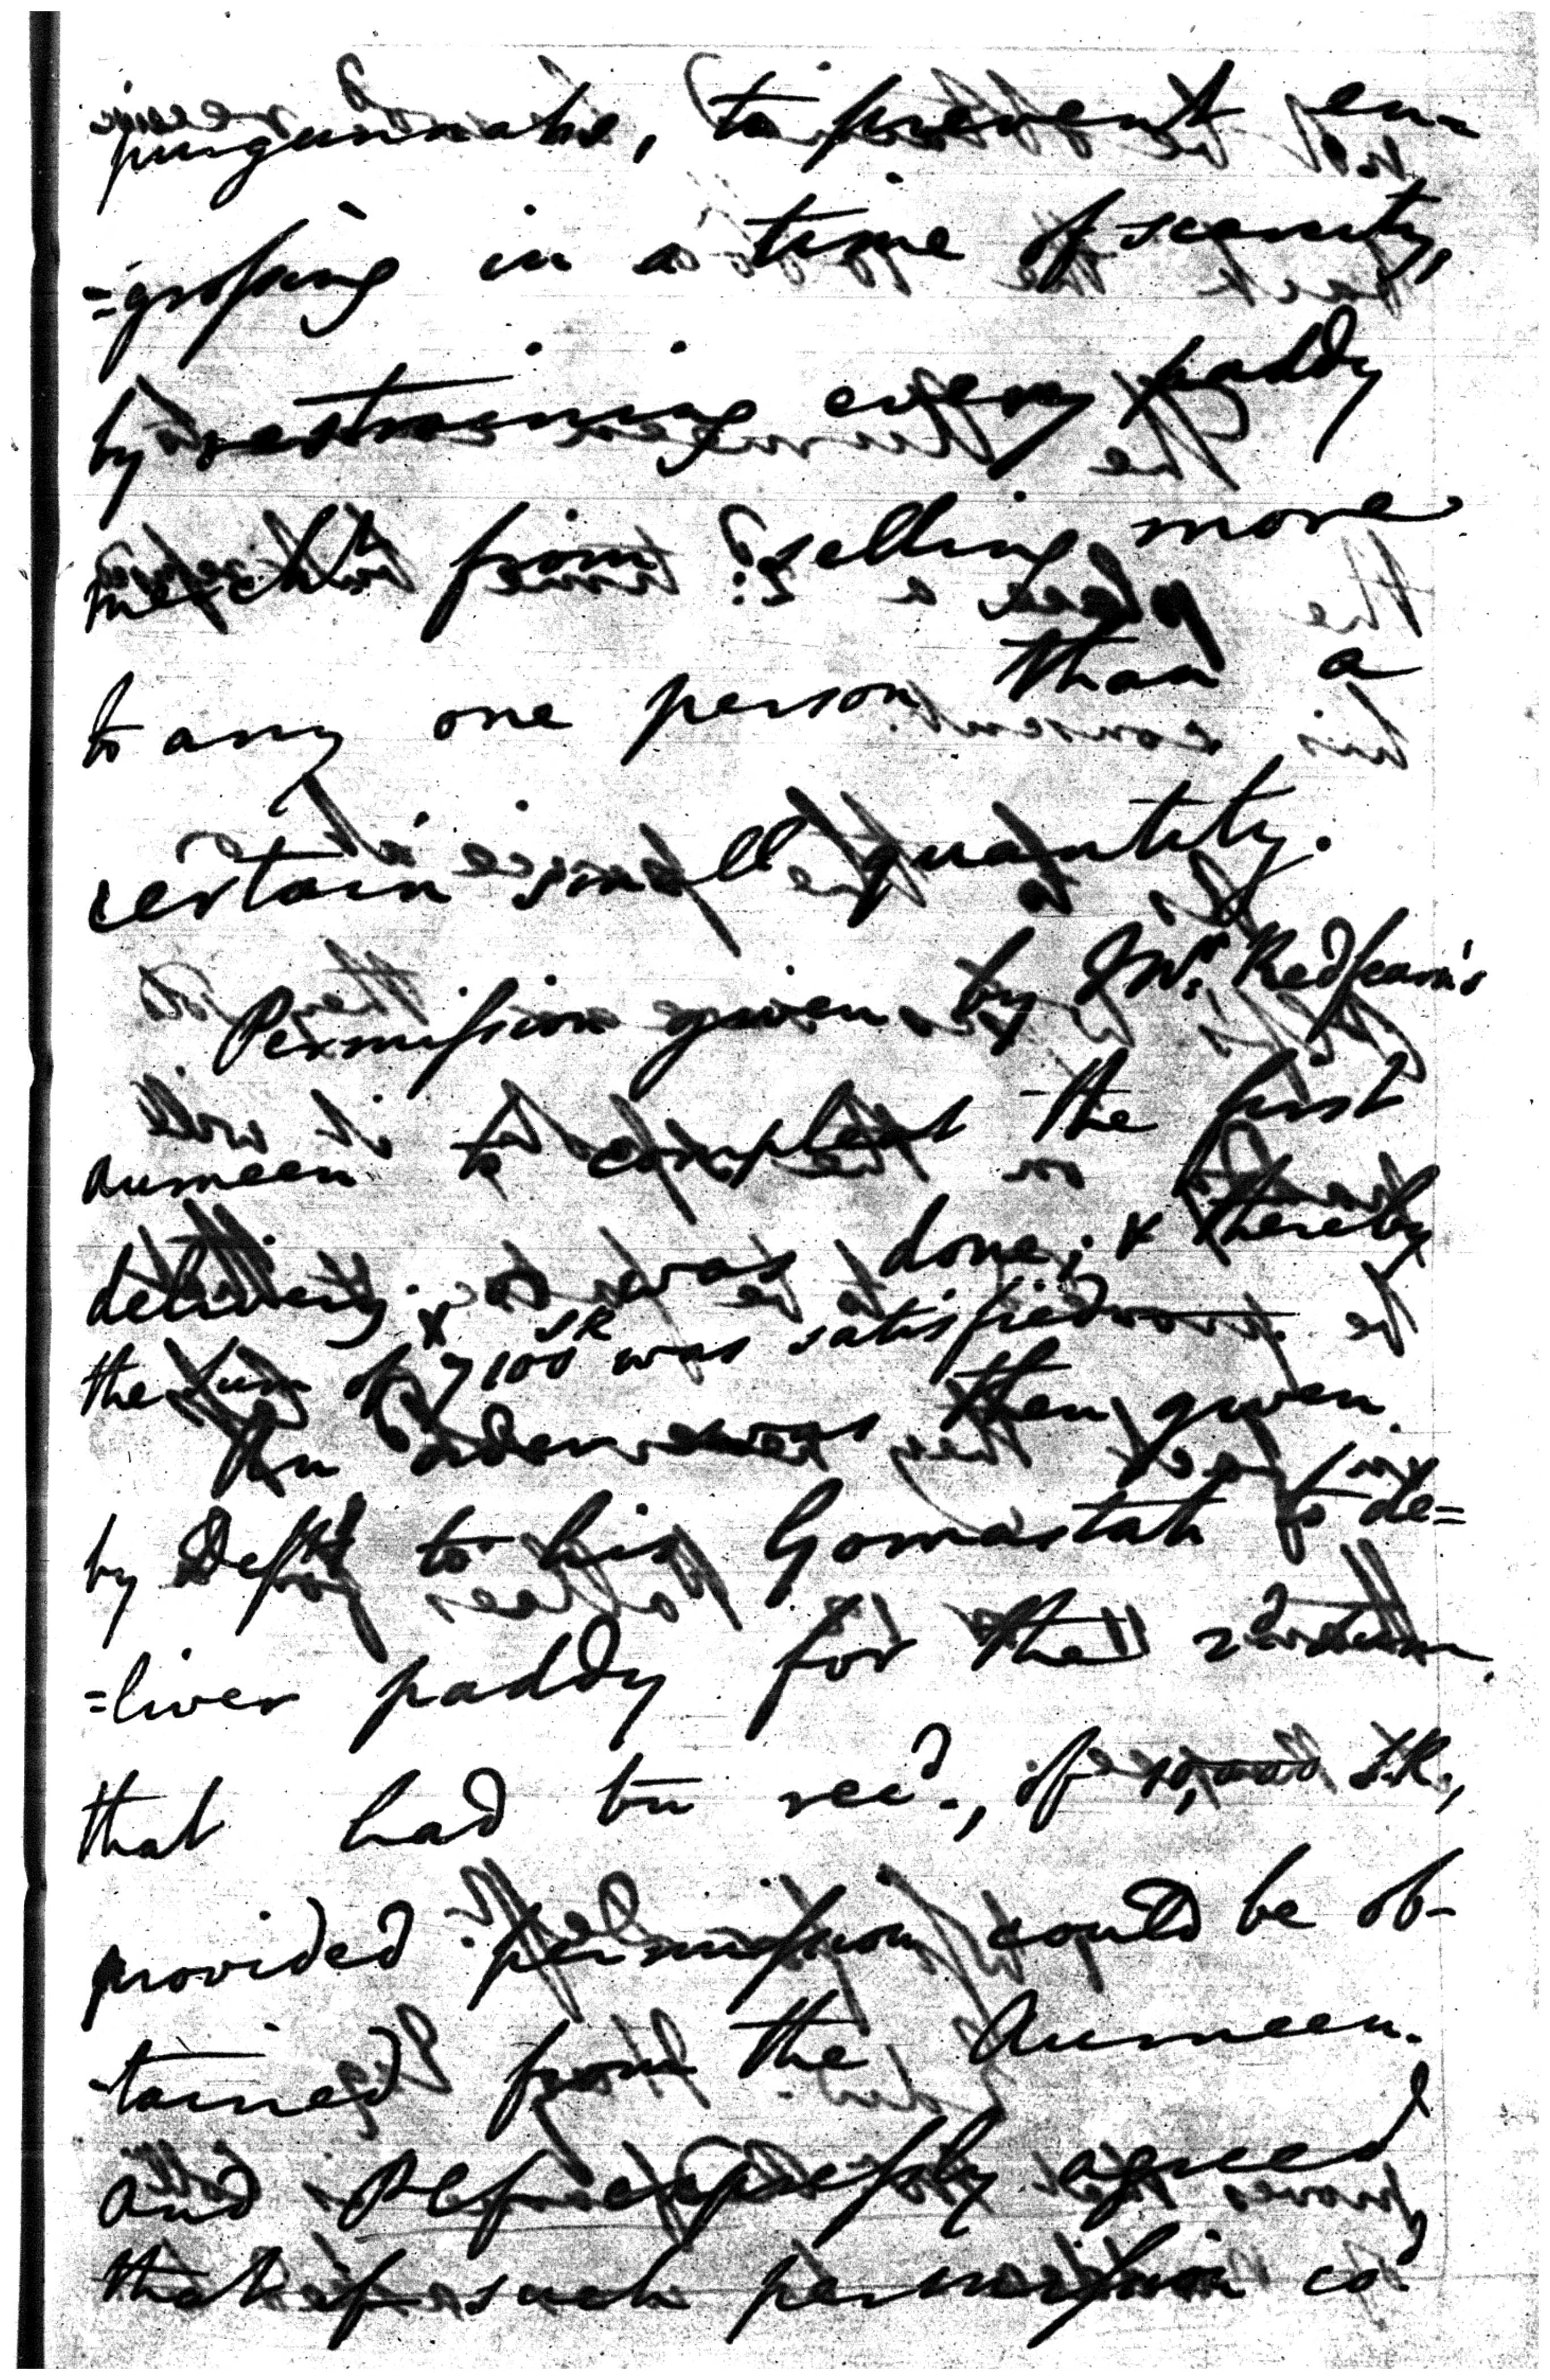 purgunnahs, to prevent en=
=grossing in a time of scarcity,
by restraining every paddy
mercht. from selling more
to any one person than a
certain small quantity.
Permission given by Mr. Redfearn's
aumeen to compleat the first
delivery as was done; & thereby
the sum of 7100 SR was satisfied
An order was then given
by Deft to his Gomastah to de=
=liver paddy for the 2d sum
that had bn recd., of 10,000 S.R.,
provided permission could be ob-
-tained from the Aumeen.
And Plf expressly agreed
that if such permission cod